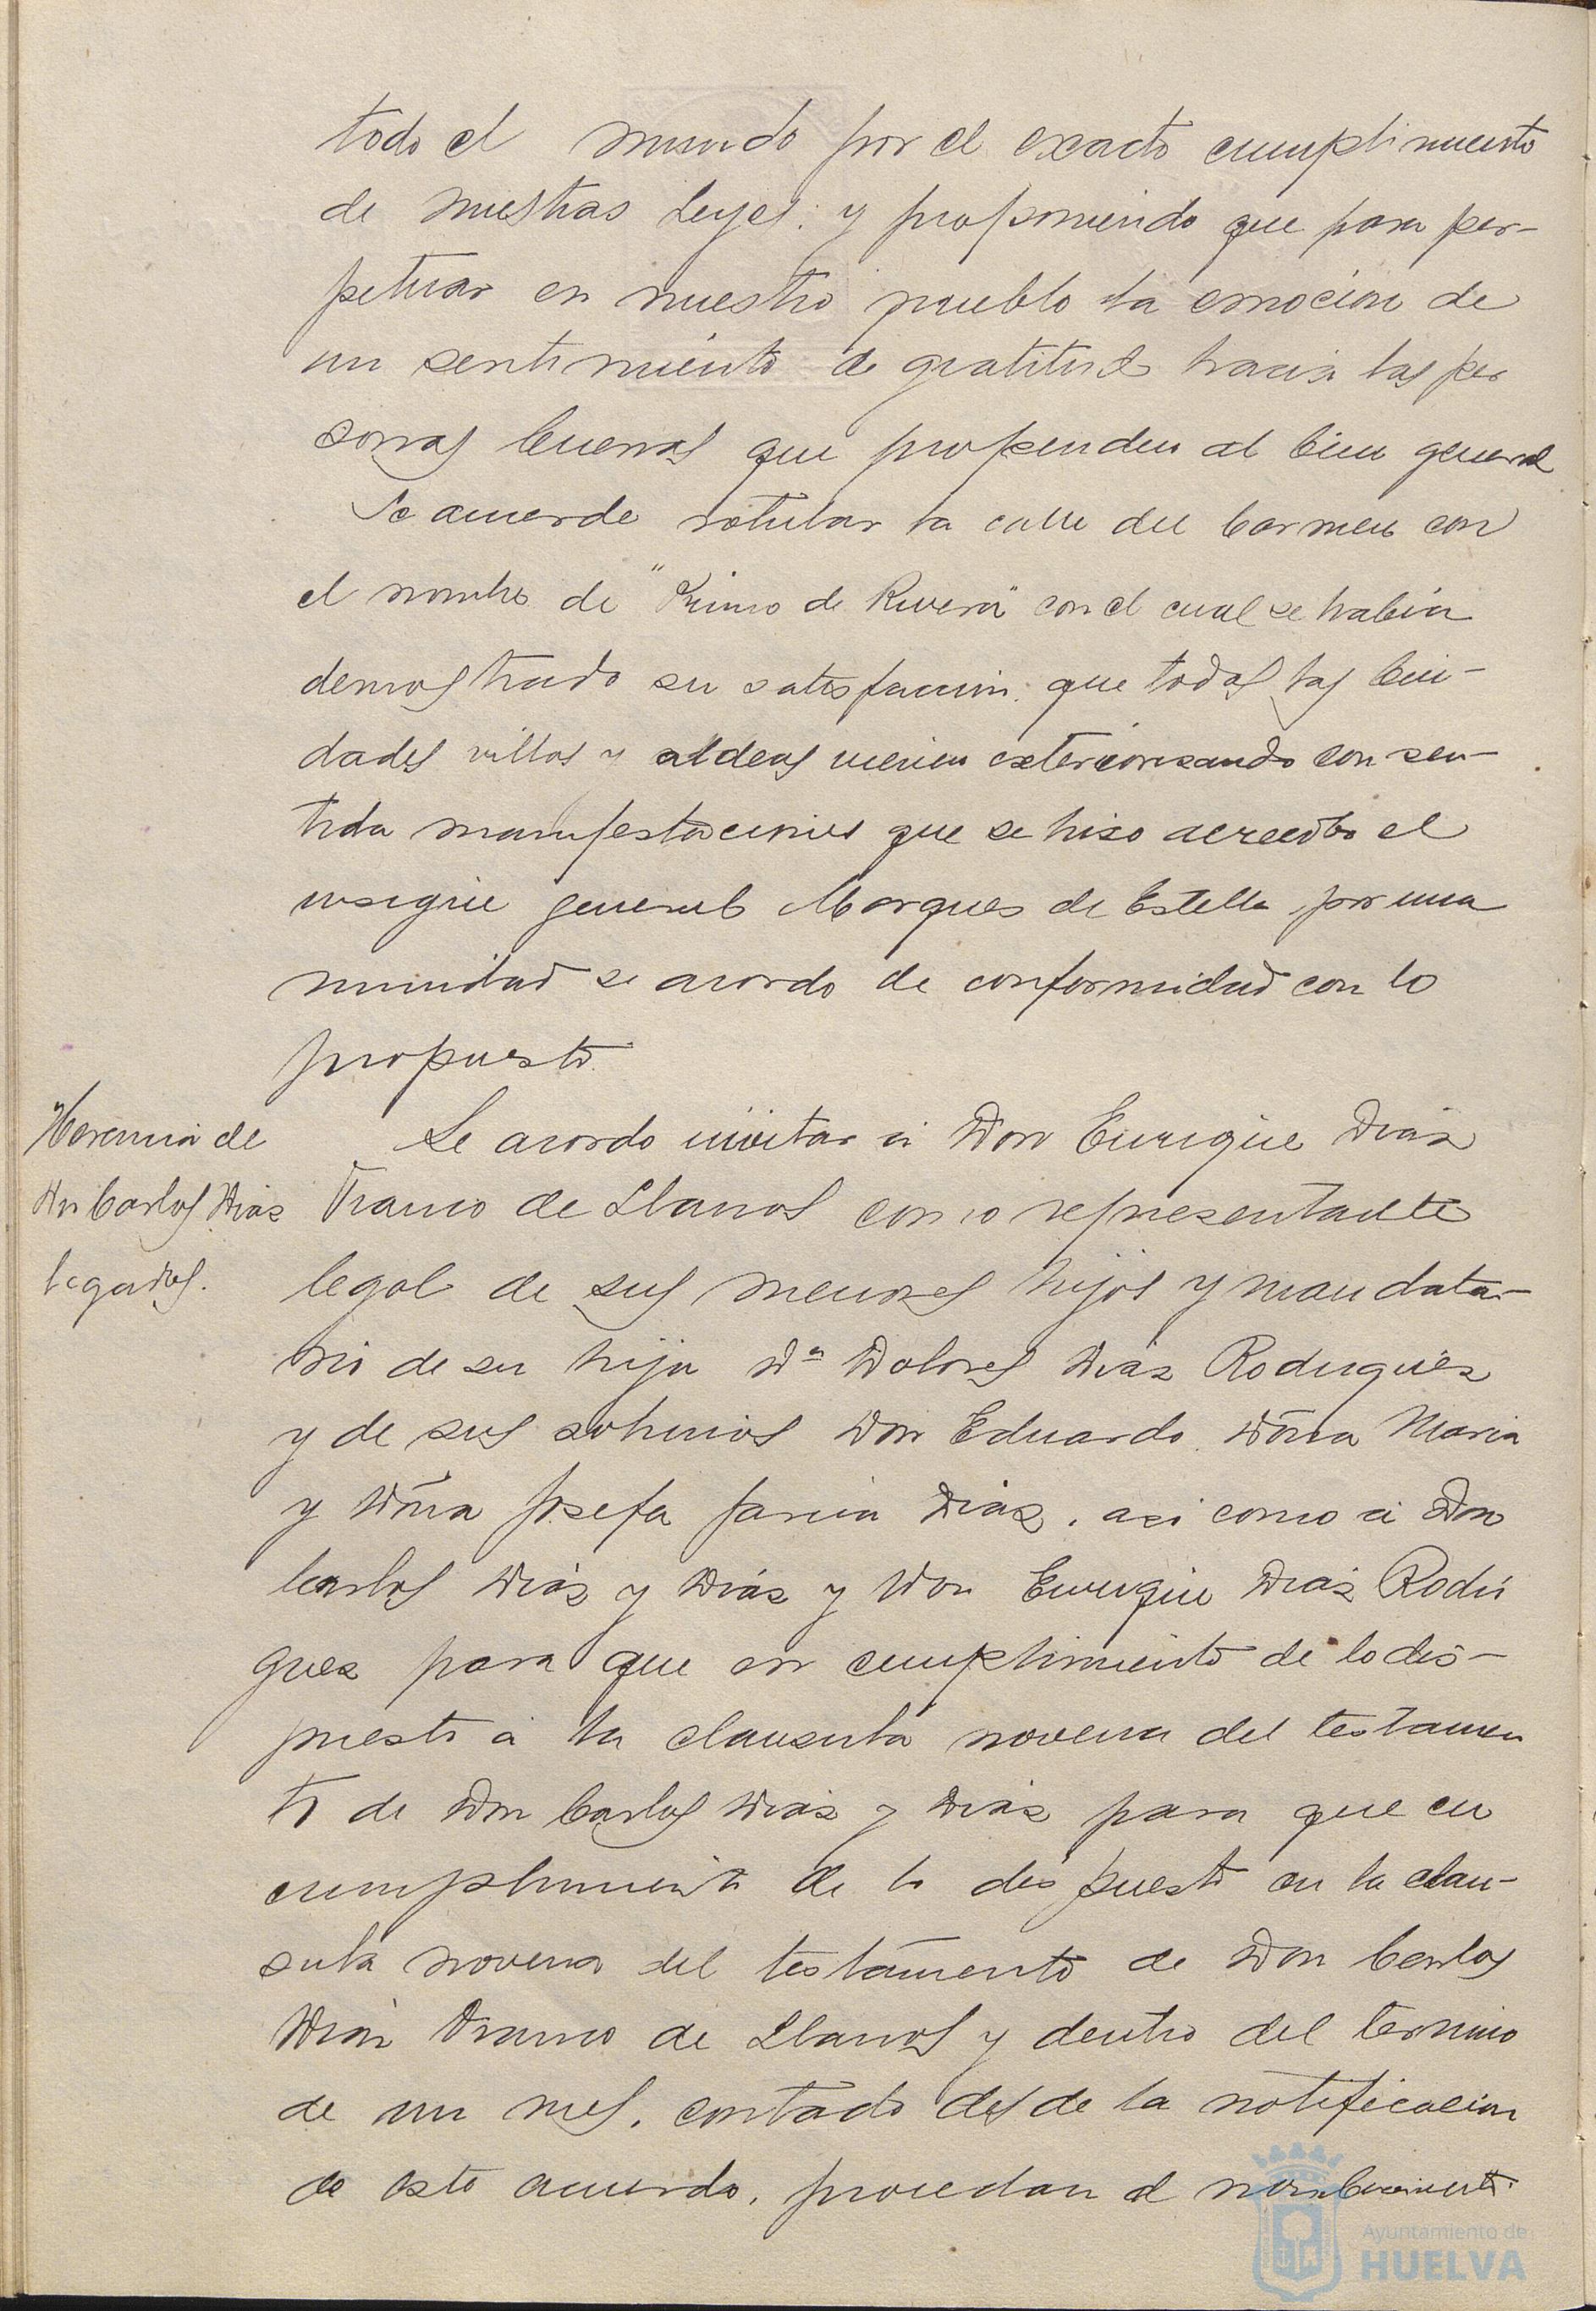 todo el mundo por el exacto cumplimiento
de nuestras Leyes: y proponiendo que para per-
petuar en nuestro pueblo la emocion de
un sentimiento de gratitud hacia las per
sonas buenas que propenden al bien general
Se acuerde rotular la calle del Carmen con
el nombre de "Primo de Rivera" con el cual se habia
demostrado su satisfaccion. que todas las Ciu-
dades villas y aldeas vienen exteriorisando con sen-
tida manifestaciones que se hiso acreedor el
insigne general Marques de Estella por una
nimidad se acordo de conformidad con lo
propuesto.
Herencia de
Dn Carlos Dias
legados.
Se acordo invitar a Don Enrique Dias
Franco de Llanos como representante
legal de sus menores hijos y mandata-
rio de su hija Dª Dolores Dias Rodriguez
y de sus sobrinos Don Eduardo. Doña Maria
y Doña Josefa Garcia Dias, asi como a Don
Carlos Dias y Dias y Don Enrique Dias Rodri
guez para que en cumplimiento de lo dis-
puesto a la clausula novena del testamen
to de Don Carlos Dias y Dias para que en
cumplimiento de lo dispuesto en la clau-
sula novena del testamento de Don Carlos
Dias Franco de Llanos y dentro del termino
de un mes, contado desde la notificacion
de este acuerdo, procedan al nombramiento
Ayuntamiento de
HUELVA